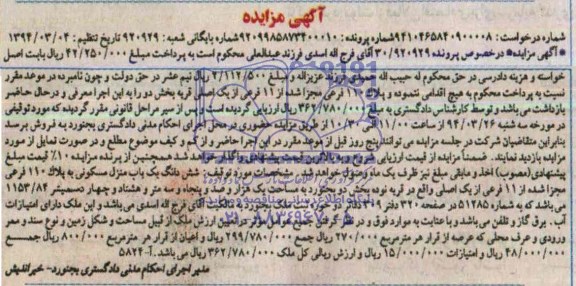 آگهی مزایده
شماره درخواست: ۹۴۱۰۴۶۵۸۴۰۹۰۰۰۰۸ شماره پرونده: ۹۲۰۹۹۸۵۸۷۳۴۰۰۰۱۰ شماره بایگانی شعبه: ۹۲۰۹۲۹ تاریخ تنظیم: ۱۳۹۴/۰۳/۰۴
* آگهی مزایده * درخصوص پرونده ۹۲۰۹۲۹/۳۰ آقای فرج اله اسدی فرزند عبدالعلی محکوم است به پرداخت مبلغ ۴۲/۲۵۰/۰۰۰ ریال بابت اصل
خواسته و هزینه دادرسی در حق محکوم له حبیب اله فرزند عزیزاله و مبلغ ۲/۱۱۲/۵۰۰ ریال نیم عشر در حق دولت و چون نامبرده در موعد مقرر
نسبت به پرداخت محکوم به هیچ اقدامی ننموده و پلاک ۱۱۰ فرعی مجزا شده از ۱۱ فرعی از یک اصلی قریه بخش دو را به این اجرا معرفی و درحال حاضر
بازداشت می‌باشد و توسط کارشناس دادگستری به مبلغ ۳۶۲/۷۸۰/۰۰۰ ریال ارزیابی گردیده است پس از سیر مراحل قانونی مقرر گردیده که مورد توقیفی
در مورخه سه شنبه ۹۴/۰۳/۲۶ از ساعت ۱۱/۰۰ الی ۱۰/۳۰ از طریق مزایده حضوری در محل اجرای احکام مدنی دادگستری بجنورد به فروش برسد
بنابراین متقاضیان شرکت در جلسه مزایده می‌توانند پنج روز قبل از موعد مقرر در این اجرا حاضر و از کم و کیف موضوع مطلع و در صورت تمایل از مورد
مزایده بازدید نمایند. ضمناً مزایده از قیمت ارزیابی شروع و به بالاترین قیمت پیشنهادی واگذار خواهد شد همچنین از برنده مزایده ۱۰٪ قیمت مبلغ
پیشنهادی (مصوب) اخذ و مابقی مبلغ نیز ظرف یک ماه وصول خواهد شد. * مشخصات مورد توقیف: شش دانگ یک باب منزل مسکونی به پلاک ۱۱۰ فرعی
مجزا شده از ۱۱ فرعی از یک اصلی واقع در قریه نوده بخش دو بجنورد به مساحت یک هزار و صد و پنجاه و سه متر و هشتاد و چهار دسیمتر ۱۱۵۳/۸۴
می‌باشد که به شماره ۵۱۲۸۵ در صفحه ۳۲۰ دفتر ۳۰۹ املاک حوزه ثبت ملک بجنورد به نام آقای فرج اله اسدی می‌باشد و این ملک دارای امتیازات
آب. برق گاز و تلفن می‌باشد و با عنایت به موارد فوق و در نظر گرفتن جمیع عوامل موثر در تعیین ارزش ملک از قبیل مساحت و شکل زمین و نوع سند و ممر
ورودی و عرف محلی که عرصه از قرار هر مترمربع ۲۷۰/۰۰۰ ریال جمع ۲۹۹/۷۸۰/۰۰۰ ریال و اعیان از قرار هر مترمربع ۸۰۰/۰۰۰ ریال جمــع
۴۸/۰۰۰/۰۰۰ ریال و امتیازات ۱۵/۰۰۰/۰۰۰ ریال و ارزش ریالی کل ملک ۳۶۲/۷۸۰/۰۰۰ ریال می‌باشد. آ- ۵۸۲۴
مدیر اجرای احکام مدنی دادگستری بجنورد - خیراندیش